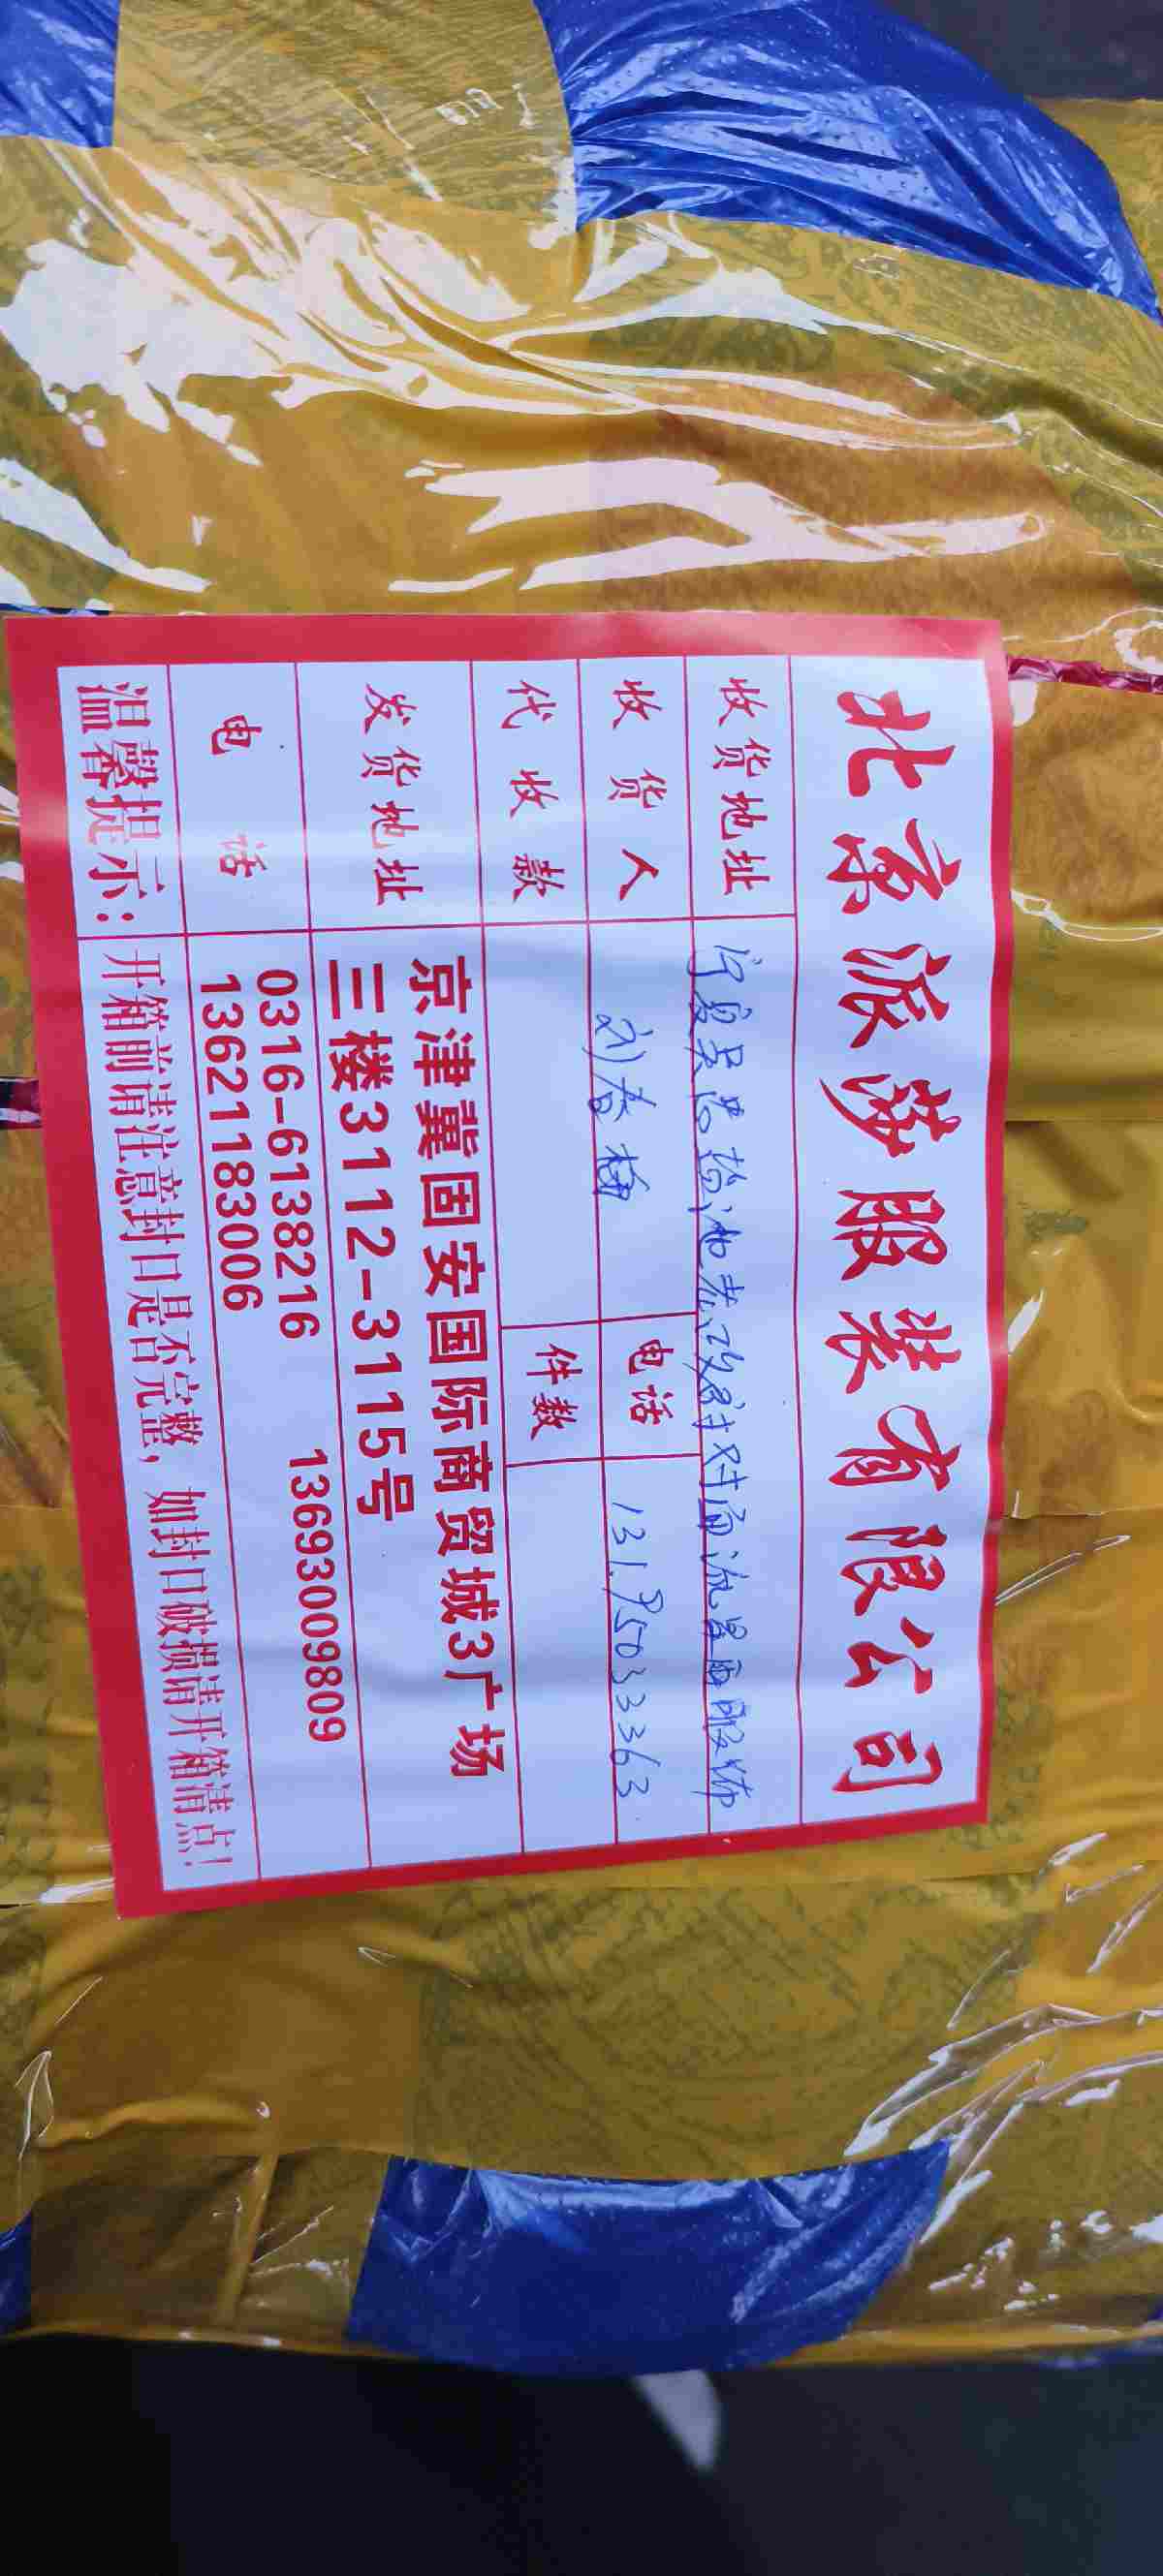 北京派莎服装有限公司
收货地址 宁夏吴忠盐池老政府对面流星雨服饰
收货人 刘春梅 电话 13195033363
代收款 件数
发货地址 京津冀固安国际商贸城3广场
三楼3112-3115号
电话 0316-6138216 13693009809
13621183006
温馨提示: 开箱前请注意封口是否完整,如封口破损请开箱清点!